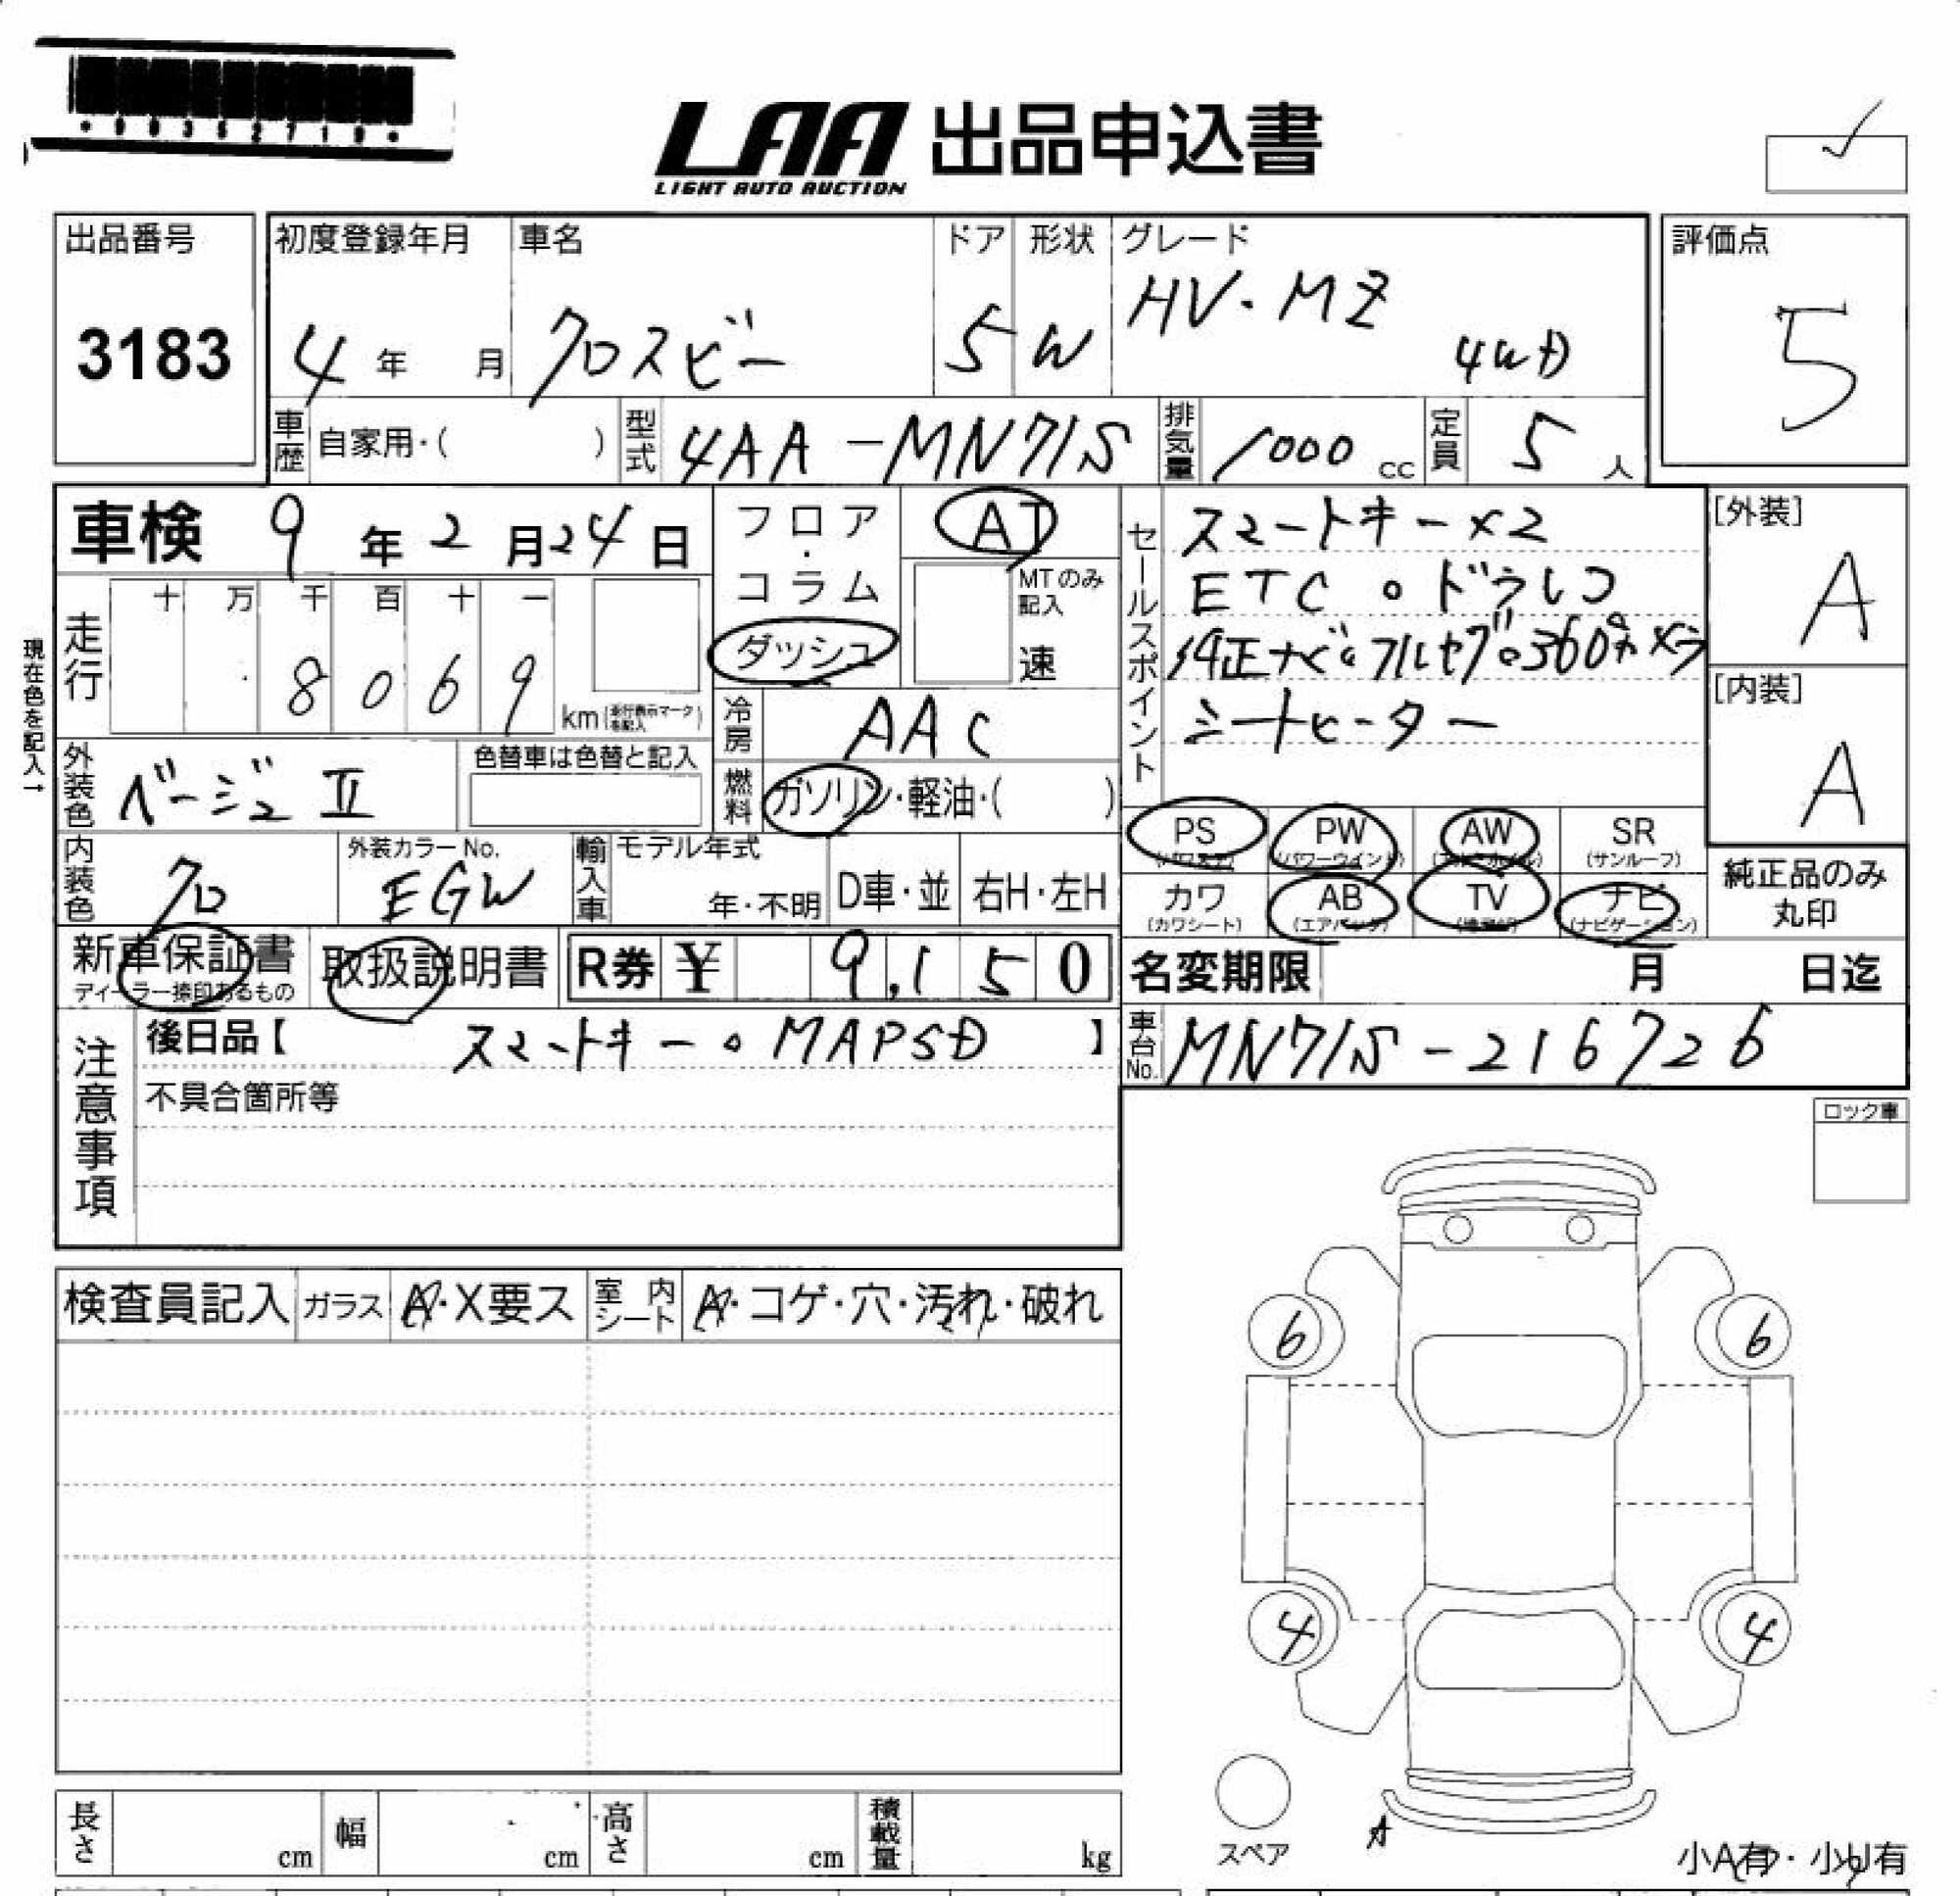 LAA 出品申込書
LIGHT AUTO AUCTION
出品番号
3183
初度登録年月
4年 月
車名
クロスビー
ドア
5
形状
W
グレード
HV・MZ
4WD
評価点
5
車歴 自家用・( )
型式 4AA-MN71S
排気量 1000 cc
定員 5 人
車検 9年2月24日
フロア・コラム
ダッシュ
AT
MTのみ記入
速
セールスポイント
スマートキー×2
ETC。ドラレコ
純正ナビ。フルセグ。360°カメラ
シートヒーター
[外装]
A
[内装]
A
現在色を記入→
走行
十 万 千 百 十 一
8 0 6 9
km(走行表示マークを記入)
冷房 AAC
外装色 ベージュ Ⅱ
色替車は色替と記入
燃料 ガソリン・軽油・( )
内装色 クロ
外装カラーNo.
EGW
輸入車
モデル年式
年・不明
D車・並
右H・左H
PS
PW
(パワーウインド)
AW
SR
(サンルーフ)
カワ
(カワシート)
AB
(エアバッグ)
TV
ナビ
(ナビゲーション)
純正品のみ
丸印
新車保証書
ディーラー捺印あるもの
取扱説明書
R券 ¥ 9,150
名変期限 月 日迄
注意事項
後日品【 スマートキー。MAPSD 】
不具合箇所等
車台No. MN71S-216726
ロック車
検査員記入
ガラス A・X要ス
室内シート A・コゲ・穴・汚れ・破れ
6
6
4
4
スペア
A
小A有・小U有
長さ cm
幅 cm
高さ cm
積載量 kg